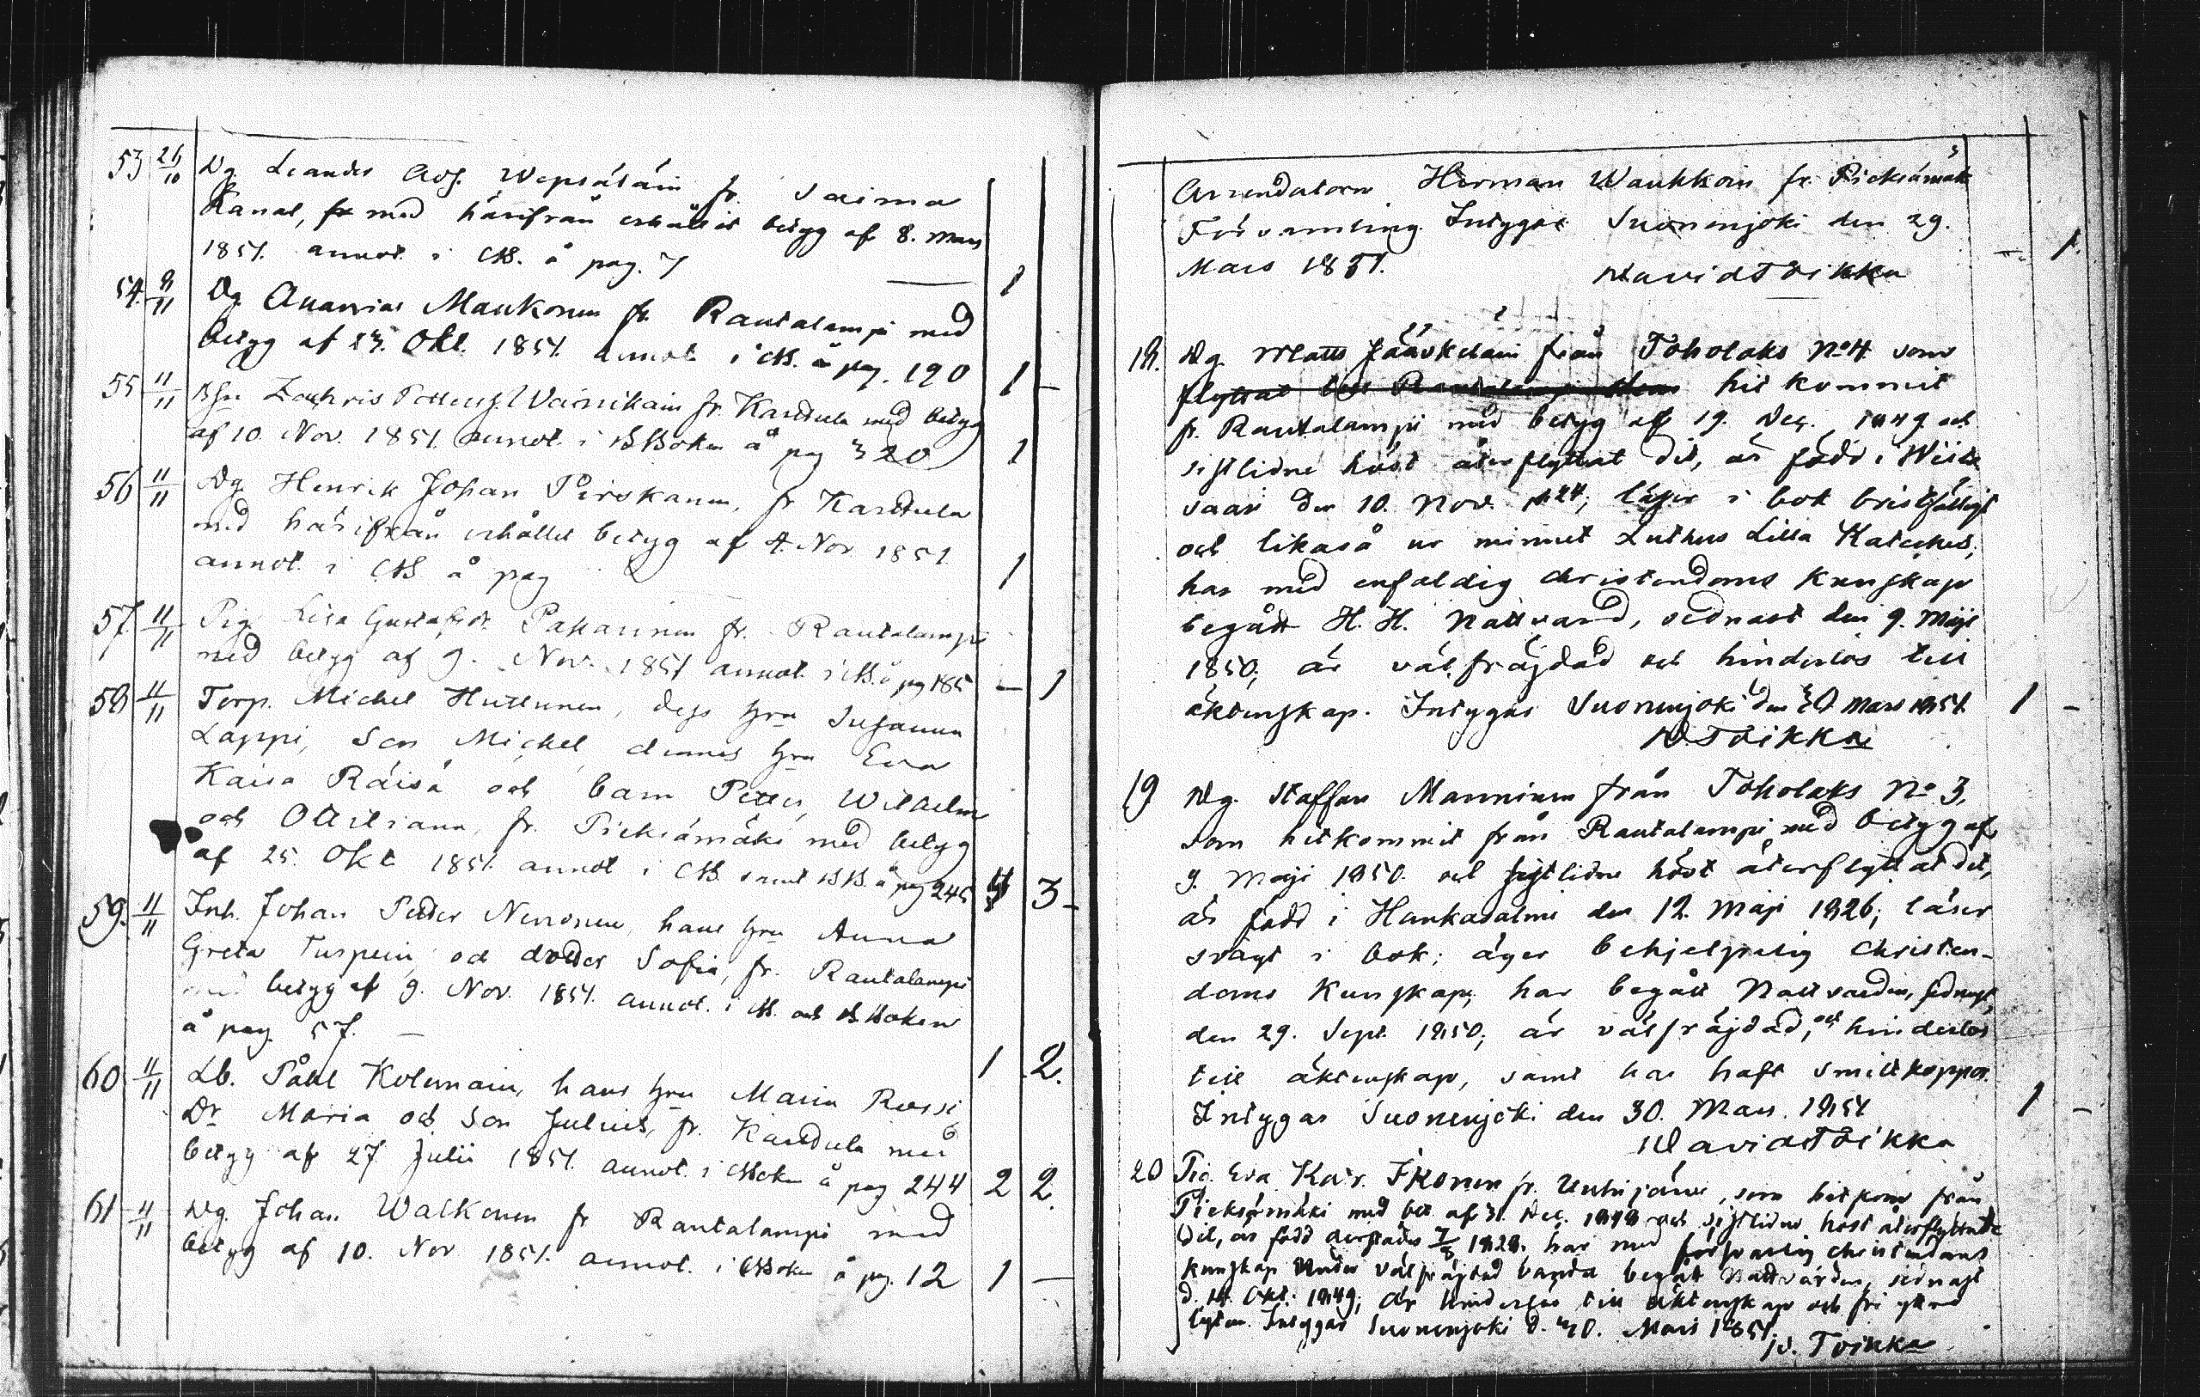 53 26/10 Dg Leander Adf. Wepsäläin fr. Saima
Kanal, fr med härifrån erhållit betyg af 8. Mars
1851. annot. i CB. å pag. 7 1
54. 9/11 Dg Ananias Maukonen fr. Rautalampi med
betyg af 27. Okt. 1851. annot i CB. å pag. 190 1 –
55 11/11 Zachris Wainikain fr. Karttula med betyg
af 10. Nov. 1851. annot. i BBoken å pag 320 1
56 11/11 Dg Henrik Johan Pirskanen, fr Karttula
med härifrån erhållit betyg af 4. Nov 1851
annot. i CB å pag 1
57. 11/11 Pig. Lisa Gustafsdr. Pakarinen fr. Rautalampi
med betyg af 9. Nov. 1851 annot. i CB. å pag 185 – 1
58 11/11 Torp. Michel Huttunen, dess hru Susanna
Lappi, Son Michel, dennes hru Eva
Kaisa Räisä och barn Petter, Wilhelm
och Ottiliana, fr. Pieksämäki med betyg
af 25. Okt 1851. annot i CB. samt BB. å pag 245 3 –
59. 11/11 Inh. Johan Petter Nenonen, hans hru Anna
Greta Turpein och dotter Sofia, fr. Rautalampi
med betyg af 9. Nov. 1851. annot. i CB. och BBoken
å pag. 57. – 1 2.
60 11/11 Lb. Påhl Kolemain, hans hru Maria Rossi
Dr Maria och Son Julius, fr. Karttula med
betyg af 27 Julii 1851. annot. i CBoken å pag 244 2 2.
61 11/11 Dg. Johan Walkonen fr Rautalampi med
betyg af 10. Nov 1851. annot. i CBoken å pag. 12 1 –
Arrendatorn Herman Wauhkoin fr. Pieksämäki
Församling. Intygar Suonenjoki den 29.
Mars 1851. David Toikka – 1.
18. Dg Matts Jääskeläin från Toholaks No 4 som
hit kommit
fr. Rautalampi med betyg af 19. Dec. 1849 och
sistlidne höst återflyttat dit, är född i Wiita
saari den 10. Nov. 1824; läser i bok bristfälligt
och likaså ur minnet Luthers Lilla Kateches,
har med enfaldig christendoms kunskap
begått H. H. Nattvard, sednast den 9. Maji
1850; är välfräjdad och hinderlös till
äktenskap. Intygas Suonenjoki den 30 Mars 1851. 1 –
D. Toikka
19 Dg. Staffan Manninen från Toholaks No 3,
som hitkommit från Rautalampi med betyg af
9. Maji 1850. och sistlidne höst återflyttat dit,
är född i Hankasalmi den 12. Maji 1826; läser
svagt i bok; äger behjelpelig Christen-
doms kunskap; har begått Nattvarden, sednast
den 29. Sept. 1850; är välfräjdad, och hinderlös
till äktenskap, samt har haft smittkoppor.
Intygas Suonenjoki den 30. Mars. 1851 1 –
David Toikka
20 Pig. Eva Kar. Ikonen fr. , som hitkom från
Pieksämäki med bet. af 31. Dec. 1848 och sistlidne höst återflyttade
dit, är född derstädes 7/8 1828, har med försvarlig christendoms
kunskap under välfräjdad vandel begått Nattvarden, sednast
d. 14. Okt. 1849; är hinderlös till äktenskap och fri
lyten. Intygas Suonenjoki d. 30. Mars 1851.
D. Toikka